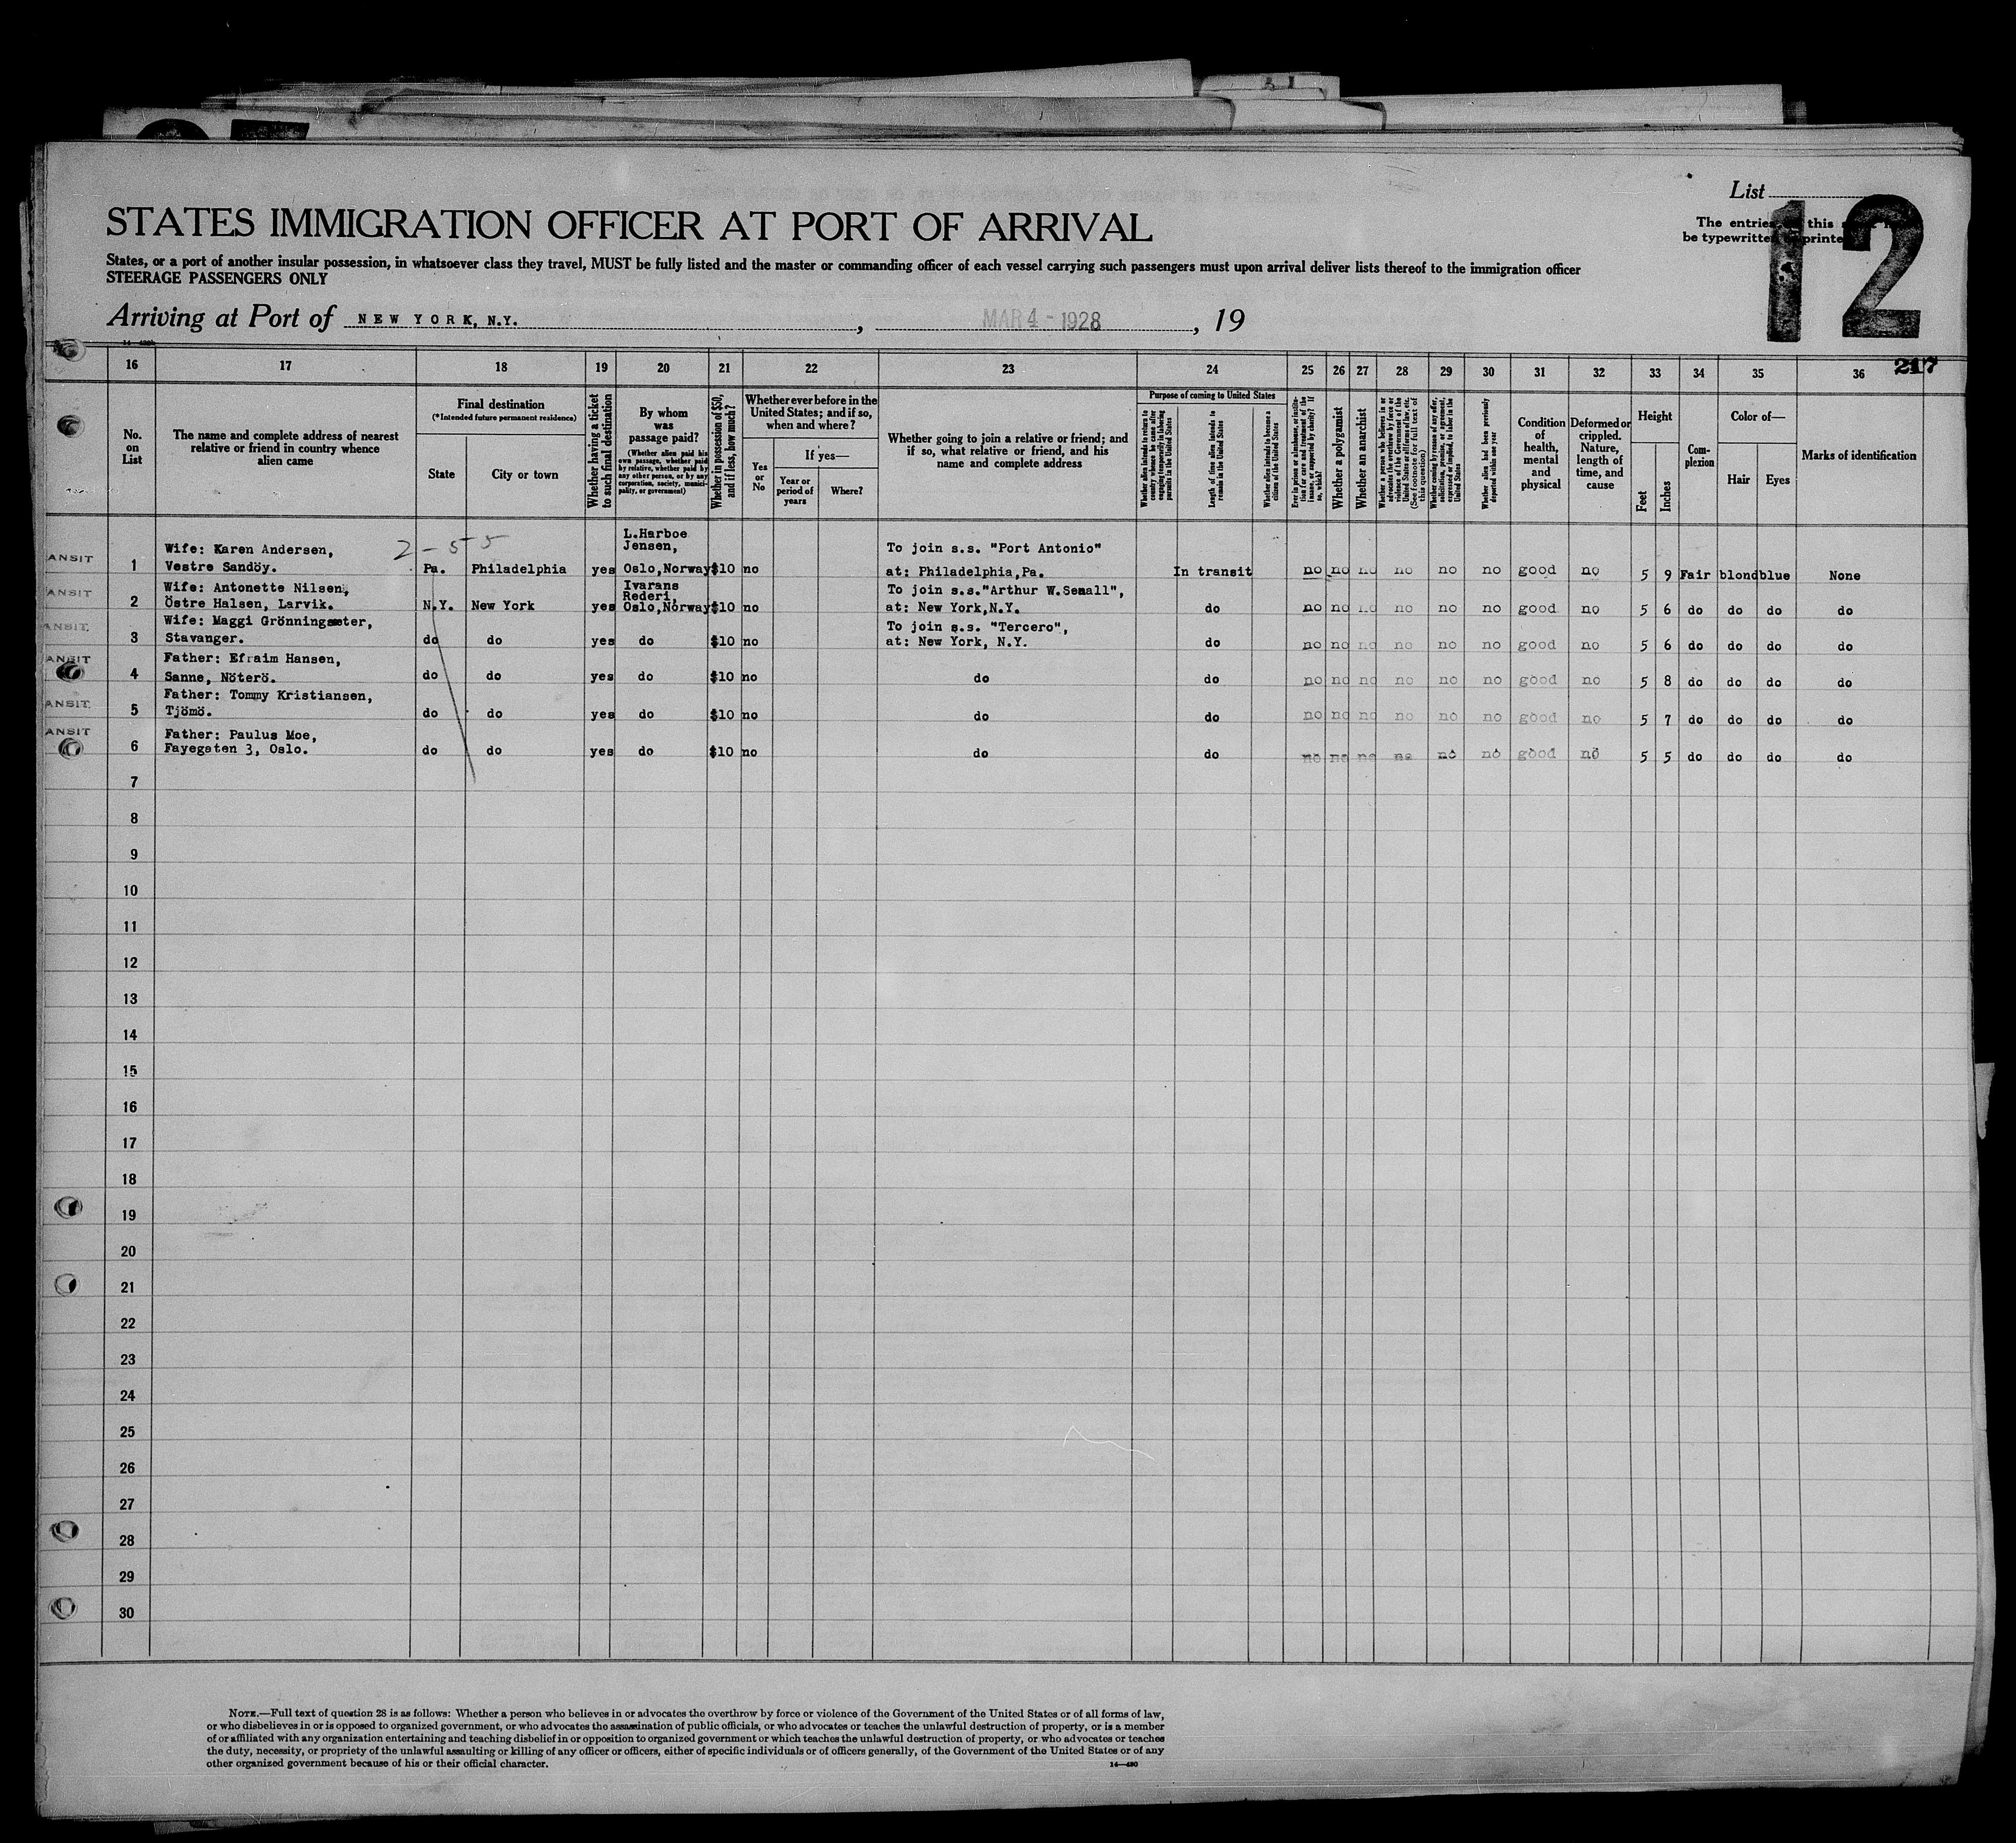 List
12
STATES IMMIGRATION OFFICER AT PORT OF ARRIVAL
The entries this
be typewritten printe
States, or a port of another insular possession, in whatsoever class they travel, MUST be fully listed and the master or commanding officer of each vessel carrying such passengers must upon arrival deliver lists thereof to the immigration officer
STEERAGE PASSENGERS ONLY
Arriving at Port of NEW YORK, N.Y. , MAR 4 - 1928 , 19
217
16 17 18 19 20 21 22 23 24 25 26 27 28 29 30 31 32 33 34 35 36
No. on List
The name and complete address of nearest relative or friend in country whence alien came
Final destination
(*Intended future permanent residence)
State
City or town
Whether having a ticket to such final destination
By whom was passage paid?
(Whether alien paid his own passage, whether paid by relative, whether paid by any other person, or by any corporation, society, municipality, or government)
Whether in possession of $50, and if less, how much?
Whether ever before in the United States; and if so, when and where?
Yes or No
If yes—
Year or period of years
Where?
Whether going to join a relative or friend; and if so, what relative or friend, and his name and complete address
Purpose of coming to United States
Whether alien intends to return to country whence he came after engaging temporarily in laboring pursuits in the United States
Length of time alien intends to remain in the United States
Whether alien intends to become a citizen of the United States
Ever in prison or almshouse, or institution for care and treatment of the insane, or supported by charity? If so, which?
Whether a polygamist
Whether an anarchist
Whether a person who believes in or advocates the overthrow by force or violence of the Government of the United States or all forms of law, etc. (See footnote for full text of this question)
Whether coming by reason of any offer, solicitation, promise, or agreement, expressed or implied, to labor in the United States
Whether alien had been previously deported within one year
Condition of health, mental and physical
Deformed or crippled. Nature, length of time, and cause
Height
Feet
Inches
Complexion
Color of—
Hair
Eyes
Marks of identification
2 - 55
ANSIT 1 Wife: Karen Andersen, Vestre Sandöy. Pa. Philadelphia yes L.Harboe Jensen, Oslo,Norway $10 no To join s.s. "Port Antonio" at: Philadelphia,Pa. In transit no no no no no no good no 5 9 Fair blond blue None
ANSIT 2 Wife: Antonette Nilsen, Östre Halsen, Larvik. N.Y. New York yes Ivarans Rederi, Oslo,Norway $10 no To join s.s."Arthur W.Semall", at: New York,N.Y. do no no no no no no good no 5 6 do do do do
ANSIT 3 Wife: Maggi Grönningsæter, Stavanger. do do yes do $10 no To join s.s. "Tercero", at: New York, N.Y. do no no no no no no good no 5 6 do do do do
ANSIT 4 Father: Efraim Hansen, Sanne, Nöterö. do do yes do $10 no do do no no no no no no good no 5 8 do do do do
ANSIT 5 Father: Tommy Kristiansen, Tjömö. do do yes do $10 no do do no no no no no no good no 5 7 do do do do
ANSIT 6 Father: Paulus Moe, Fayegaten 3, Oslo. do do yes do $10 no do do no no no no no no good no 5 5 do do do do
7
8
9
10
11
12
13
14
15
16
17
18
19
20
21
22
23
24
25
26
27
28
29
30
NOTE.—Full text of question 28 is as follows: Whether a person who believes in or advocates the overthrow by force or violence of the Government of the United States or of all forms of law,
or who disbelieves in or is opposed to organized government, or who advocates the assassination of public officials, or who advocates or teaches the unlawful destruction of property, or is a member
of or affiliated with any organization entertaining and teaching disbelief in or opposition to organized government or which teaches the unlawful destruction of property, or who advocates or teaches
the duty, necessity, or propriety of the unlawful assaulting or killing of any officer or officers, either of specific individuals or of officers generally, of the Government of the United States or of any
other organized government because of his or their official character.
14—430